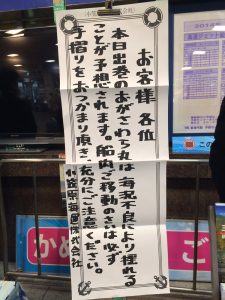 お客様各位
本日出港のおがさわら丸は海況不良により揺れる
ことが予想されます。船内ご移動のさいは必ず
手摺りをおつかまり頂き、充分にご注意ください。
小笠原海運株式会社
かめ
ご